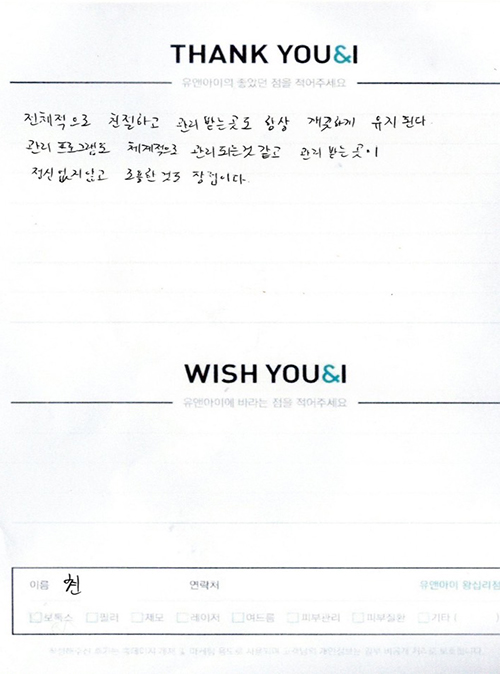 THANK YOU&I
유앤아이의 좋았던 점을 적어주세요
전체적으로 친절하고 관리 받는곳도 항상 깨끗하게 유지된다.
관리 프로그램도 체계적으로 관리되는것 같고 관리 받는 곳이
정신없지않고 조용한 것도 장점이다.
WISH YOU&I
유앤아이에 바라는 점을 적어주세요
이름 최 연락처 유앤아이 왕십리점
보톡스 필러 제모 레이저 여드름 피부관리 피부질환 기타 ( )